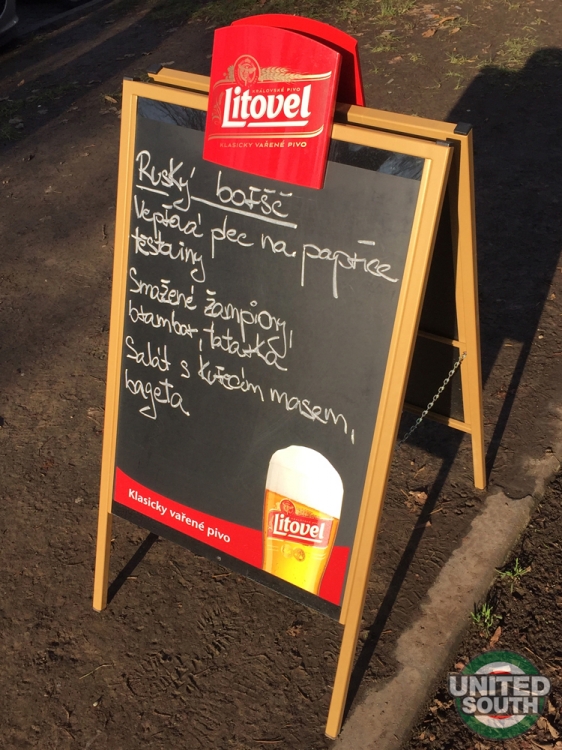 KRÁLOVSKÉ PIVO
Litovel
KLASICKY VAŘENÉ PIVO
Ruský boršč
Vepřová plec na paprice
těstoviny
Smažené žampiony,
brambor, tatarka
Salát s kuřecím masem,
bageta
Litovel
Klasicky vařené pivo
UNITED
SOUTH